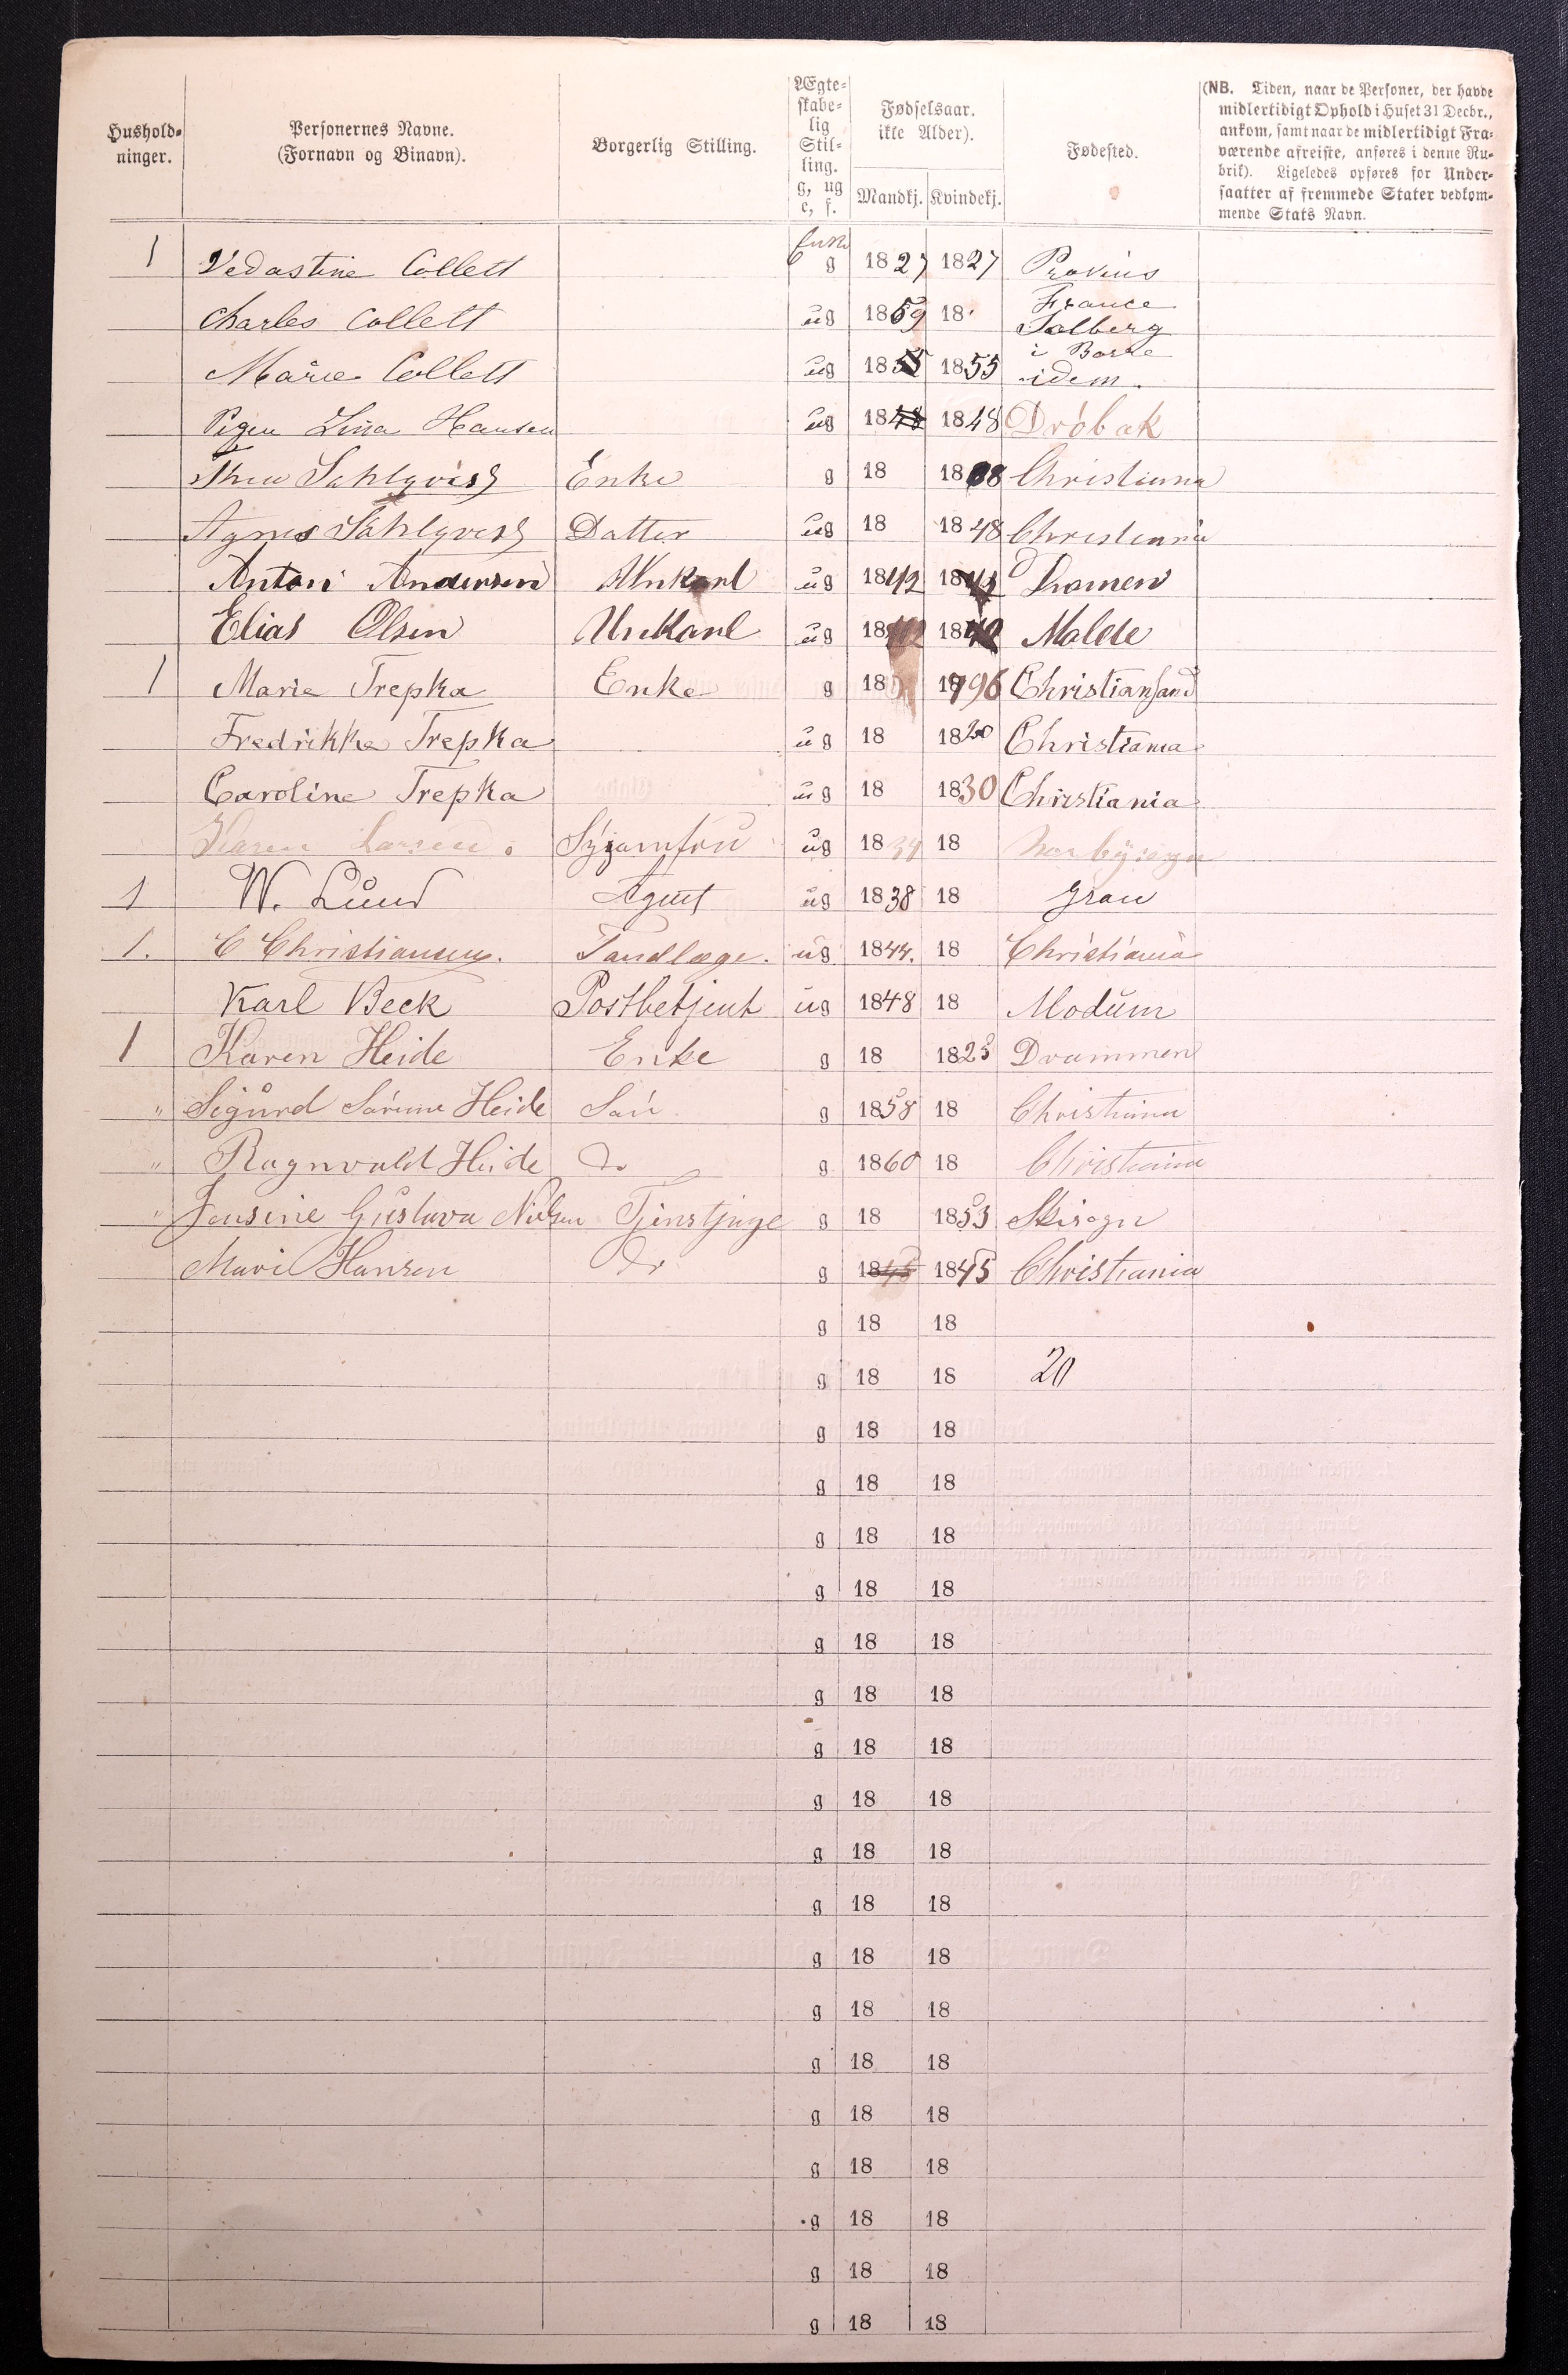 Hushold-
ninger.
Personernes Navne.
(Fornavn og Binavn).
Borgerlig Stilling.
Ægte-
skabe-
lig
Stil-
ling.
g, ug
e, f.
Fødselsaar.
ikke Alder).
Mandkj. Kvindekj.
Fødested.
(NB. Tiden, naar de Personer, der havde
midlertidigt Ophold i Huset 31 Decbr.,
ankom, samt naar de midlertidigt Fra-
værende afreiste, anføres i denne Ru-
brik). Ligeledes opføres for Under-
saatter af fremmede Stater vedkom-
mende Stats Navn.
1 Vedastine Collett g 1827 1827 Provins
France
Charles Collett ug 1859 18 Solberg
i Borre
Marie Collett ug 1855 1855 idem.
Pigen Lina Hansen ug 1848 1848 Dröbak
Thea Sahlqvist Enke g 18 18 Christiania
Agnes Sahlqvist Datter ug 18 1848 Christiania
Anton Andersen ug 1842 1842 Dramen
Elias Olsen ug 1842 1842 Molde
1 Marie Trepka Enke g 18 1796 Christiansand
Fredrikke Trepka ug 18 18 Christiania
Caroline Trepka ug 18 1830 Christiania
Karen Larsen. Syjomfru ug 1834 18
1 W. Lund Agent ug 1838 18 Gran
1. C Christiansen. Tandlæge. ug 1844. 18 Christiania
Karl Beck Postbetjent ug 1848 18 Modum
1 Karen Heide Enke g 18 1825 Drammen
" Sigurd Heide Sön g 1858 18 Christiania
" Ragnvald Heide Do g 1860 18 Christiania
" Jensine Gustava Nielsen Tjenstpige g 18 1853 Skisogn
Mari Hansen Do g 1845 1845 Christiania
g 18 18
g 18 18 20
g 18 18
g 18 18
g 18 18
g 18 18
g 18 18
g 18 18
g 18 18
g 18 18
g 18 18
g 18 18
g 18 18
g 18 18
g 18 18
g 18 18
g 18 18
g 18 18
g 18 18
g 18 18